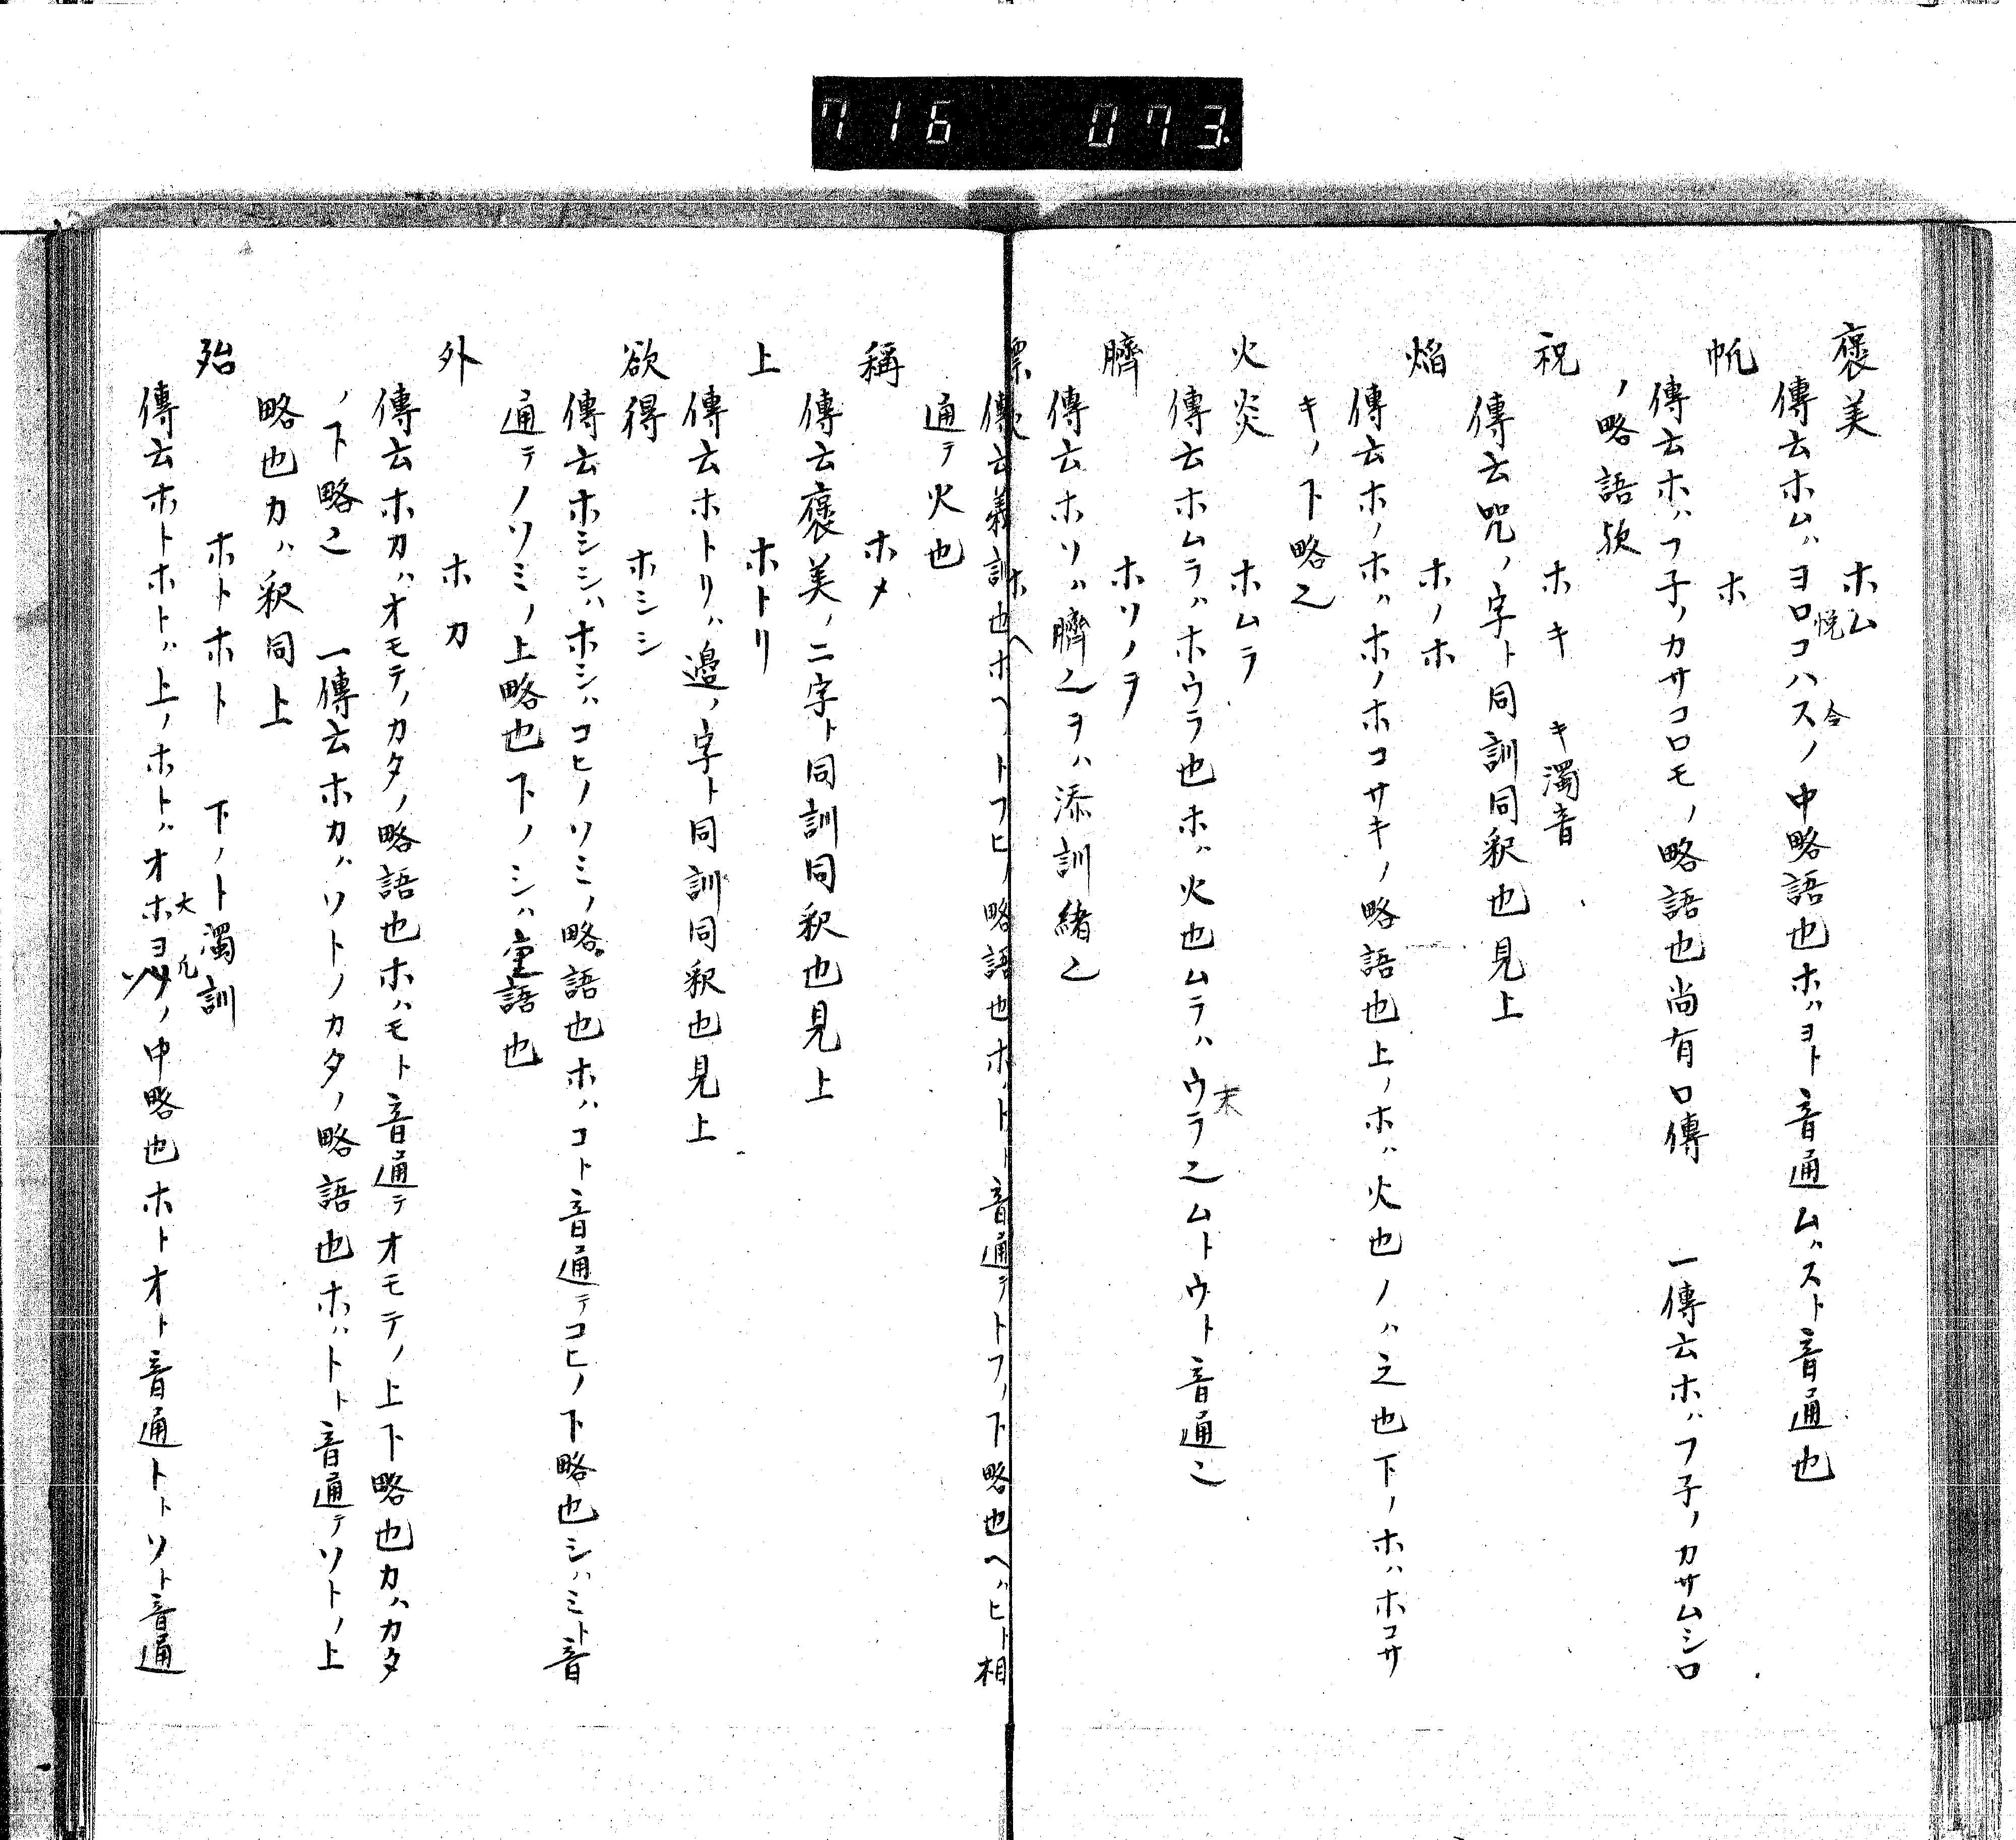 716 073
褒美 ホム
傳云ホムハヨロコハスノ中略語也ホハヨト音通ムハスト音通也
悦 令
帆 ホ
傳云ホハフ子ノカサコロモノ略語也尚有口傳 一傳云ホハフ子ノカサムシロ
ノ略語欤
祝 ホキ キ濁音
傳云咒ノ字ト同訓同釈也見上
焔 ホノホ
傳云ホノホハホノホコサキノ略語也上ノホハ火也ノハ之也下ノホハホコサ
キノ下略之
火炎 ホムラ
傳云ホムラハホウラ也ホハ火也ムラハウラ之ムトウト音通之
末
臍 ホソノヲ
傳云ホソハ臍之ヲハ添訓緒之
傳云義訓也ホヘハトフヒノ略語也ホハトト音通テトフノ下略也ヘハヒト相
通テ火也
稱 ホメ
傳云褒美ノ二字ト同訓同釈也見上
上 ホトリ
傳云ホトリハ邉ノ字ト同訓同釈也見上
欲得 ホシシ
傳云ホシシハホシハコヒノソミノ略語也ホハコト音通テコヒノ下略也シハミト音
通テノソミノ上略也下ノシハ重語也
外 ホカ
傳云ホカハオモテノカタノ略語也ホハモト音通テオモテノ上下略也カハカタ
ノ下略之 一傳云ホカハソトノカタノ略語也ホハトト音通テソトノ上
略也カハ釈同上
殆 ホトホト 下ノト濁訓
傳云ホトホトハ上ノホトハオホヨソノ中略也ホトオト音通トトソト音通
大 凡